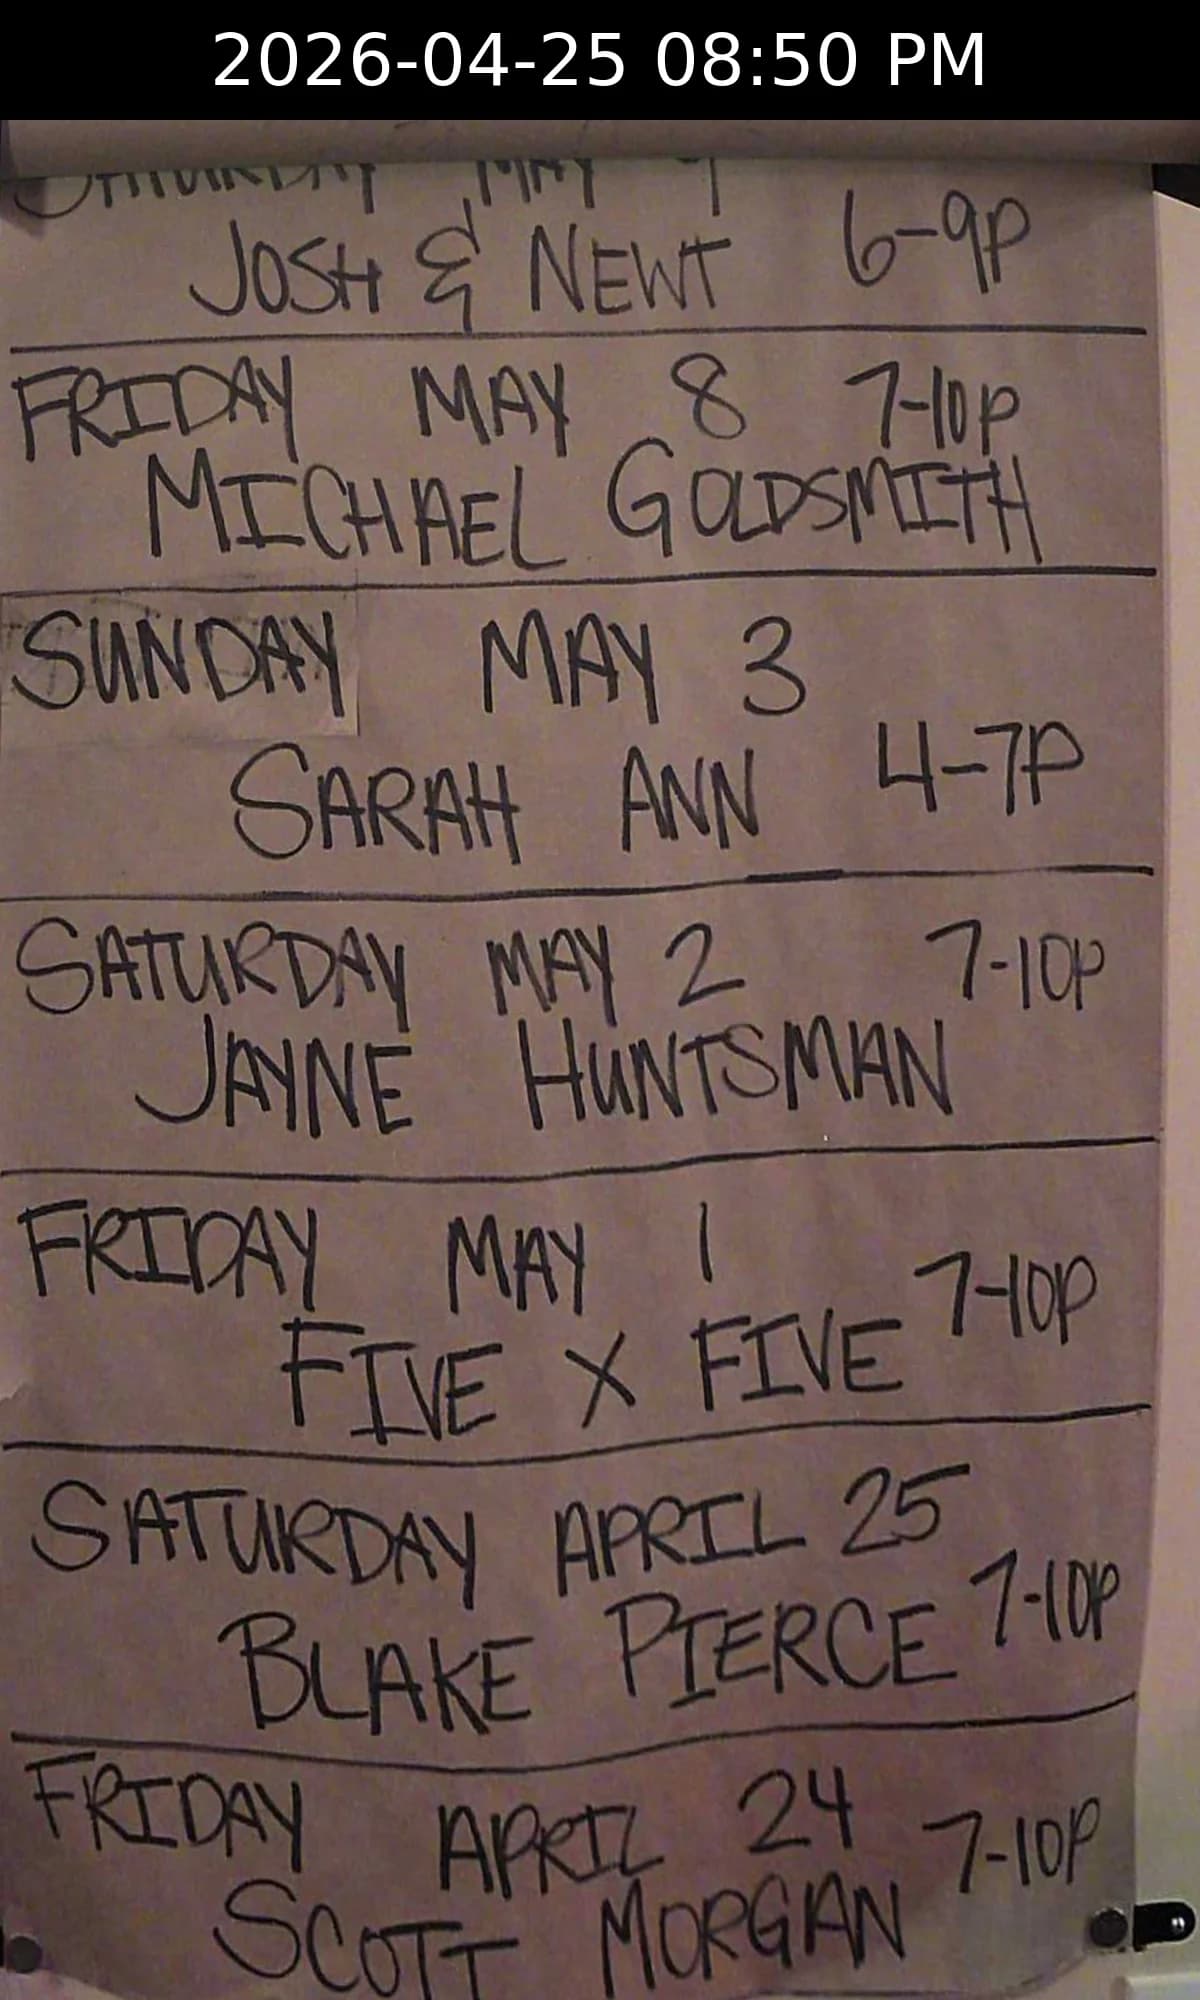 2026-04-25 08:50 PM
SATURDAY MAY 9
JOSH & NEWT 6-9P
FRIDAY MAY 8 7-10P
MICHAEL GOLDSMITH
SUNDAY MAY 3
SARAH ANN 4-7P
SATURDAY MAY 2 7-10P
JAYNE HUNTSMAN
FRIDAY MAY 1
FIVE X FIVE 7-10P
SATURDAY APRIL 25
BLAKE PIERCE 7-10P
FRIDAY APRIL 24 7-10P
SCOTT MORGAN